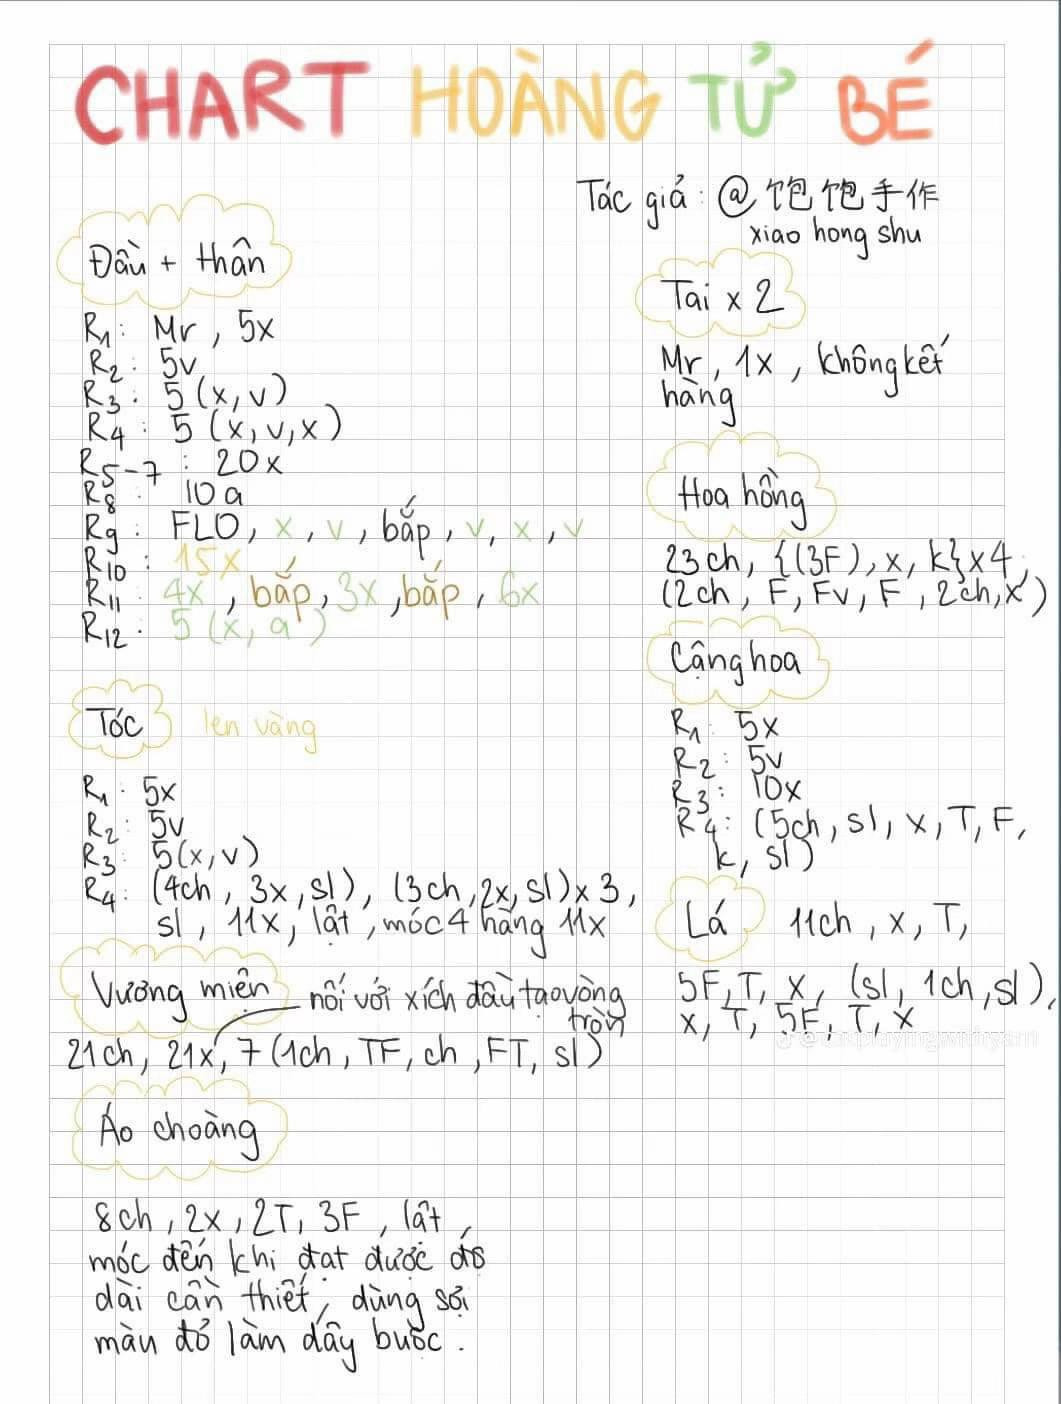 CHART HOÀNG TỬ BÉ
Tác giả: @饱饱手作
xiao hong shu
Đầu + thân
R1: Mr, 5x
R2: 5v
R3: 5(x,v)
R4: 5(x,v,x)
R5-7: 20x
R8: 10a
R9: FLO, x, v, bắp, v, x, v
R10: 15x
R11: 4x, bắp, 3x, bắp, 6x
R12: 5(x, a)
Tóc len vàng
R1: 5x
R2: 5v
R3: 5(x,v)
R4: (4ch, 3x, sl), (3ch, 2x, sl)x3,
sl, 11x, lật, móc 4 hàng 11x
Vương miện nối với xích đầu tạo vòng
tròn
21ch, 21x, 7(1ch, TF, ch, FT, sl)
Áo choàng
8ch, 2x, 2T, 3F, lật
móc đến khi đạt được độ
dài cần thiết, dùng sợi
màu đỏ làm dây buộc.
Tai x 2
Mr, 1x, không kết
hàng
Hoa hồng
23ch, {(3F), x, k}x4,
(2ch, F, Fv, F, 2ch, x)
Cộng hoa
R1: 5x
R2: 5v
R3: 10x
R4: (5ch, sl, x, T, F,
k, sl)
Lá 11ch, x, T,
5F, T, x, (sl, 1ch, sl),
x, T, 5F, T, x